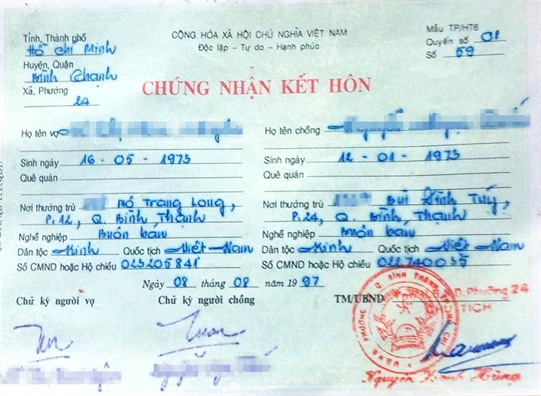 Tỉnh, Thành phố
Hồ Chí Minh
Huyện, Quận
Bình Thạnh
Xã, Phường
24
CỘNG HÒA XÃ HỘI CHỦ NGHĨA VIỆT NAM
Độc lập - Tự do - Hạnh phúc
Mẫu TP/HT6
Quyển số 01
Số 59
CHỨNG NHẬN KẾT HÔN
Họ tên vợ
Sinh ngày 16 - 05 - 1973
Quê quán
Nơi thường trú Nơ Trang Long,
P.12, Q. Bình Thạnh
Nghề nghiệp Buôn bán
Dân tộc Kinh Quốc tịch Việt Nam
Số CMND hoặc Hộ chiếu 023205841
Họ tên chồng
Sinh ngày 12 - 01 - 1973
Quê quán
Nơi thường trú Bùi Đình Túy,
P.24, Q. Bình Thạnh
Nghề nghiệp Buôn bán
Dân tộc Kinh Quốc tịch Việt Nam
Số CMND hoặc Hộ chiếu 022740035
Ngày 08 tháng 08 năm 1997
Chữ ký người vợ
Chữ ký người chồng
TM/UBND Phường 24
CHỦ TỊCH
Nguyễn Thanh Hùng